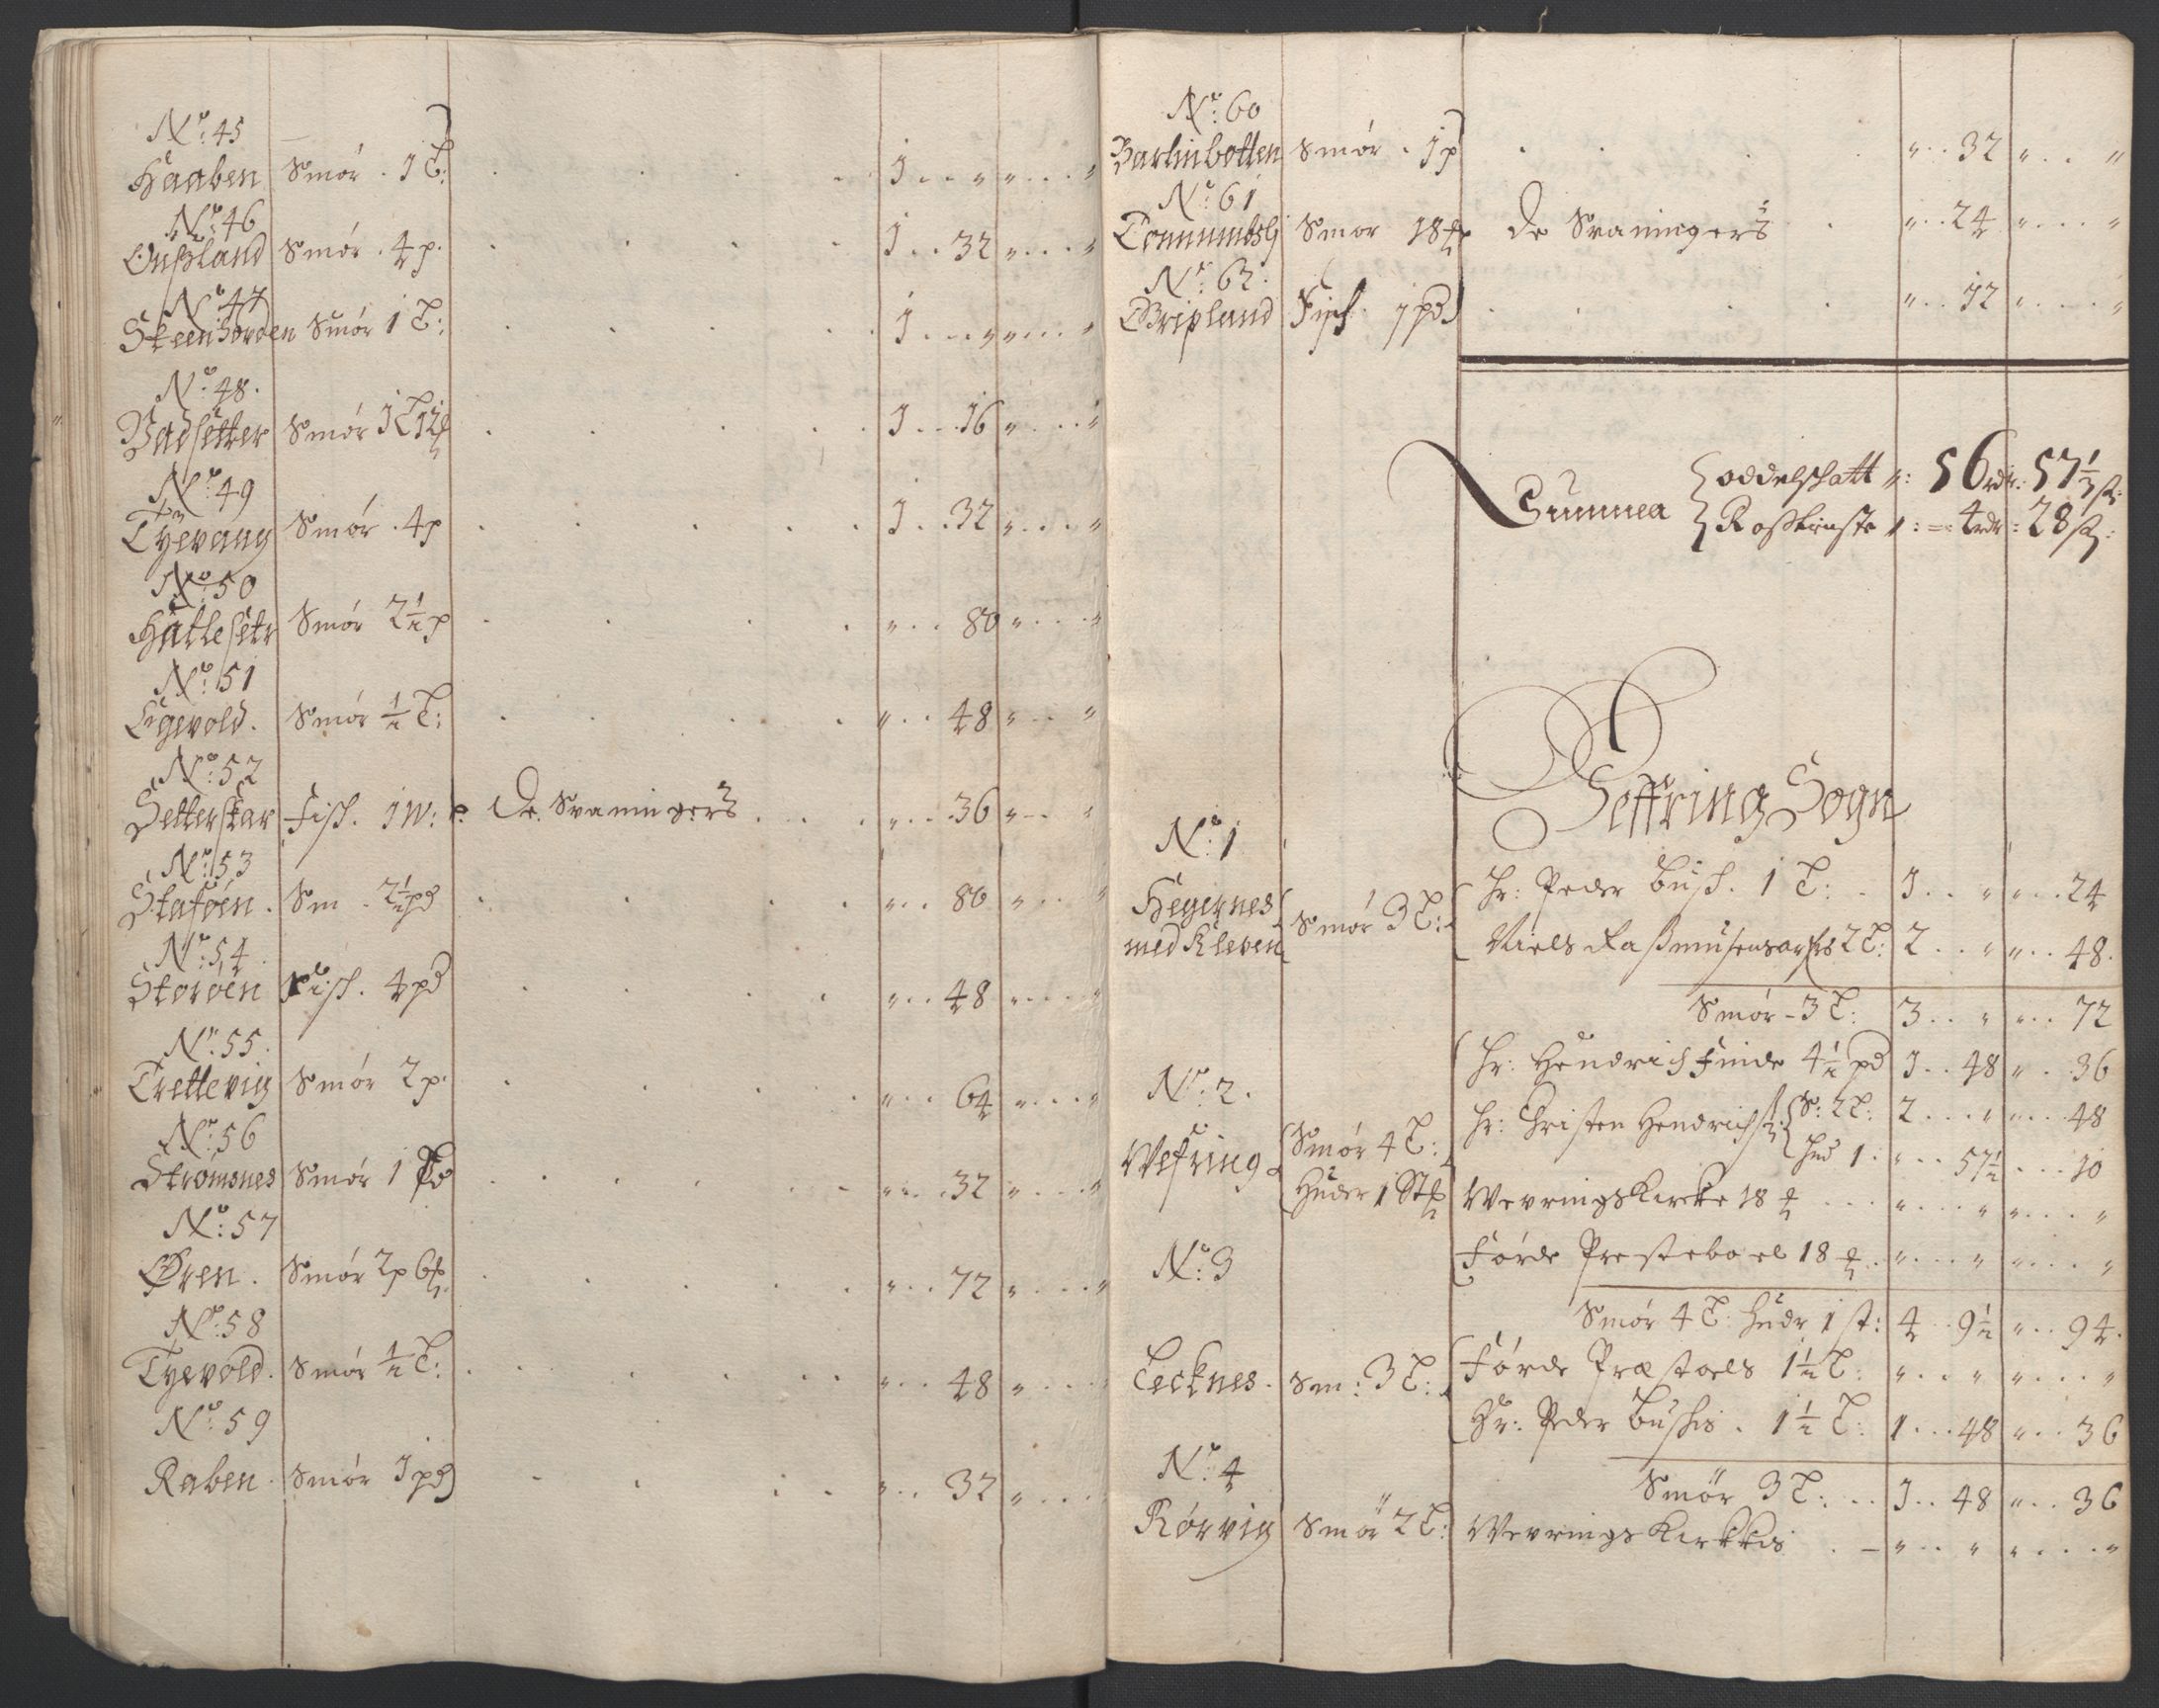 No: 45
Haaben Smör . 1 T: . . . 1 . . " " . . . "
No: 46
Ousland Smör . 4 p. . . . 1 . . 32 " . . . "
No: 47
Steenjorden Smör 1 T: . . . 1 . . . " " . . . "
No: 48.
Badsetter Smör 1 T 12 . . . 1 . . 16 " . . . "
No: 49
Tyevang Smör . 4 p . . . 1 . . 32 " . . . "
No: 50
Hatlesetr Smör 2½ p . . . " . . 80 " . . . "
No: 51
Egevold. Smör ½ T: . . . " . . 48 " . . "
No: 52
Setterskar Fisk. 1 W: De Svaningers . . . " . . 36 " . . "
No: 53
Staföen. Sm . 2½ pd . . . " . . 80 " . . "
No: 54.
Storöen Fisk. 4 pd . . . " . . 48 " . . . "
No: 55.
Trettevig Smör 2 p. . . . " . . 64 " . . . "
No: 56
Strömsnes Smör 1 Pd . . . " . . 32 " . . . "
No: 57
Øren. Smör 2 p 6 . . . " . . 72 " . . . "
No: 58
Tyevold. Smör ½ T: . . . " . . 48 " . . .
No: 59
Raben. Smör 1 pd . . . " . . 32 " . . .
No: 60
Barlinbotten Smör . 1 p . . . " . . 32 " . . "
No: 61
Tommindsli Smör 18 De Svaningers . . " . . 24 " . . . "
No: 62.
Gripland Fisk. 1 pd . . . " . . 12 " . . . "
Summa { oddelskatt ": 56 rdr: 57⅓ s:
{ Rostieniste 1: = 4 rdr: 28 s:
Weffring Sogn
No: 1
Hegernes
med Kleven Smör 3 T:
Hr: Peder Busk. 1 T: . 1 . . " " . . 24
Niels Rasmusens arfvis 2 T: 2 . . " " . . 48.
Smör - 3 T: 3 . . " " . . 72
No: 2.
Wefring. Smör 4 T:
Huder 1 St
Hr: Hendrich Finde 4½ pd 1 . . 48 " . . 36
Hr: Christen Hendrichs: { S: 2 T: 2 . . . " " . . 48
hud 1: " . . 57½ . . . 10
Wevrings Kircke 18 . . . " . . . " " . . . "
Förde Presteboel 18 . " . . . " " . . . "
Smör 4 T: Hudr 1 st: 4 . . 9½ " . . 94.
No: 3
Tecknes. Sm: 3 T:
Förde Præstoels 1½ T: " . . " " . . . "
Hr: Peder Buskis . 1½ T: 1 . . 48 " . . 36
Smör 3 T: . . 1 . . 48 " . . 36
No: 4
Rörvig Smör 2 T: Wevrings Kirkkis . - " . . " " . . . "